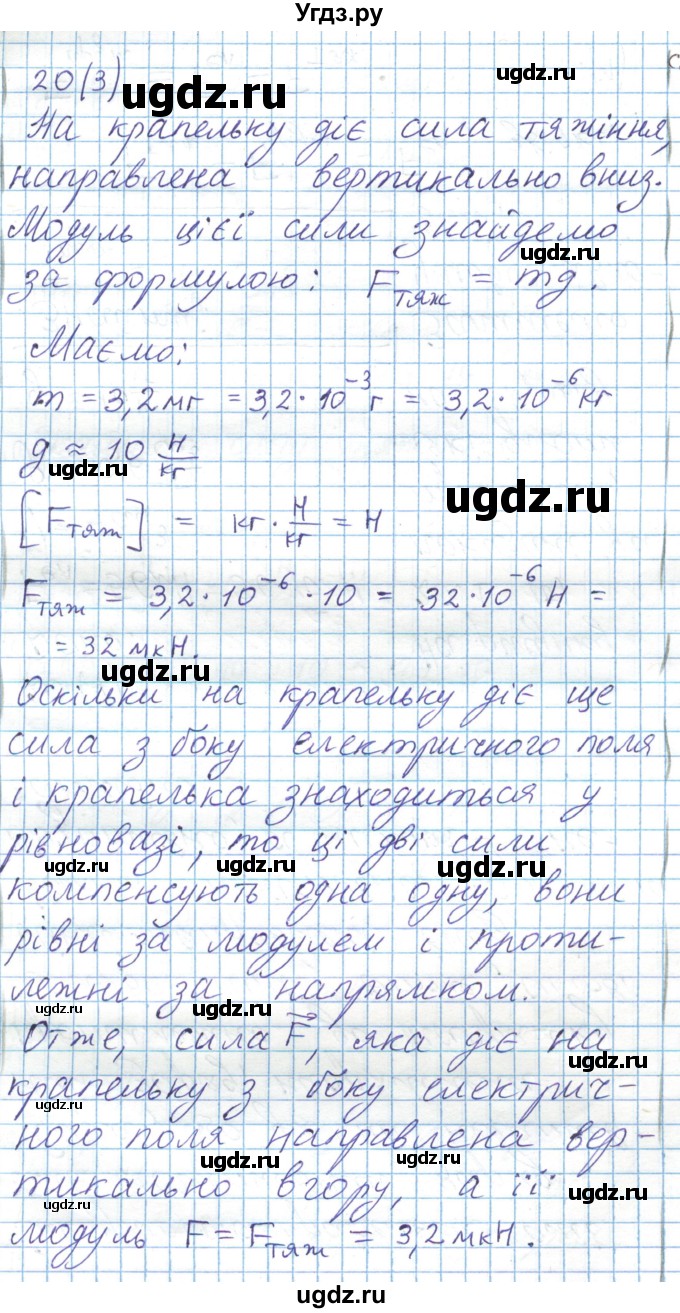 Угдз.ру
20(3)
ugdz.ru
На крапельку діє сила тяжіння,
направлена вертикально вниз.
ugdz.ru
Модуль цієї сили знайдемо
ugdz.ru
за формулою: Fтяж = mg.
Маємо:
ugdz.ru
m = 3,2 мг = 3,2·10⁻³ г = 3,2·10⁻⁶ кг
g ≈ 10 Н/кг
ugdz.ru
ugdz.ru
[Fтяж] = кг·Н/кг = Н
Fтяж = 3,2·10⁻⁶·10 = 32·10⁻⁶ Н =
= 32 мкН.
ugdz.ru
ugdz.ru
Оскільки на крапельку діє ще
сила з боку електричного поля
і крапелька знаходиться у
рівновазі, то ці дві сили
ugdz.ru
ugdz.ru
ugdz.ru
компенсують одна одну, вони
рівні за модулем і проти-
лежні за напрямком.
ugdz.ru
Отже, сила F, яка діє на
ugdz.ru
крапельку з боку електрич-
ugdz.ru
ного поля направлена вер-
ugdz.ru
ugdz.ru
тикально вгору, а її
модуль F = Fтяж = 3,2 мкН.
ugdz.ru
ugdz.ru
ugdz.ru